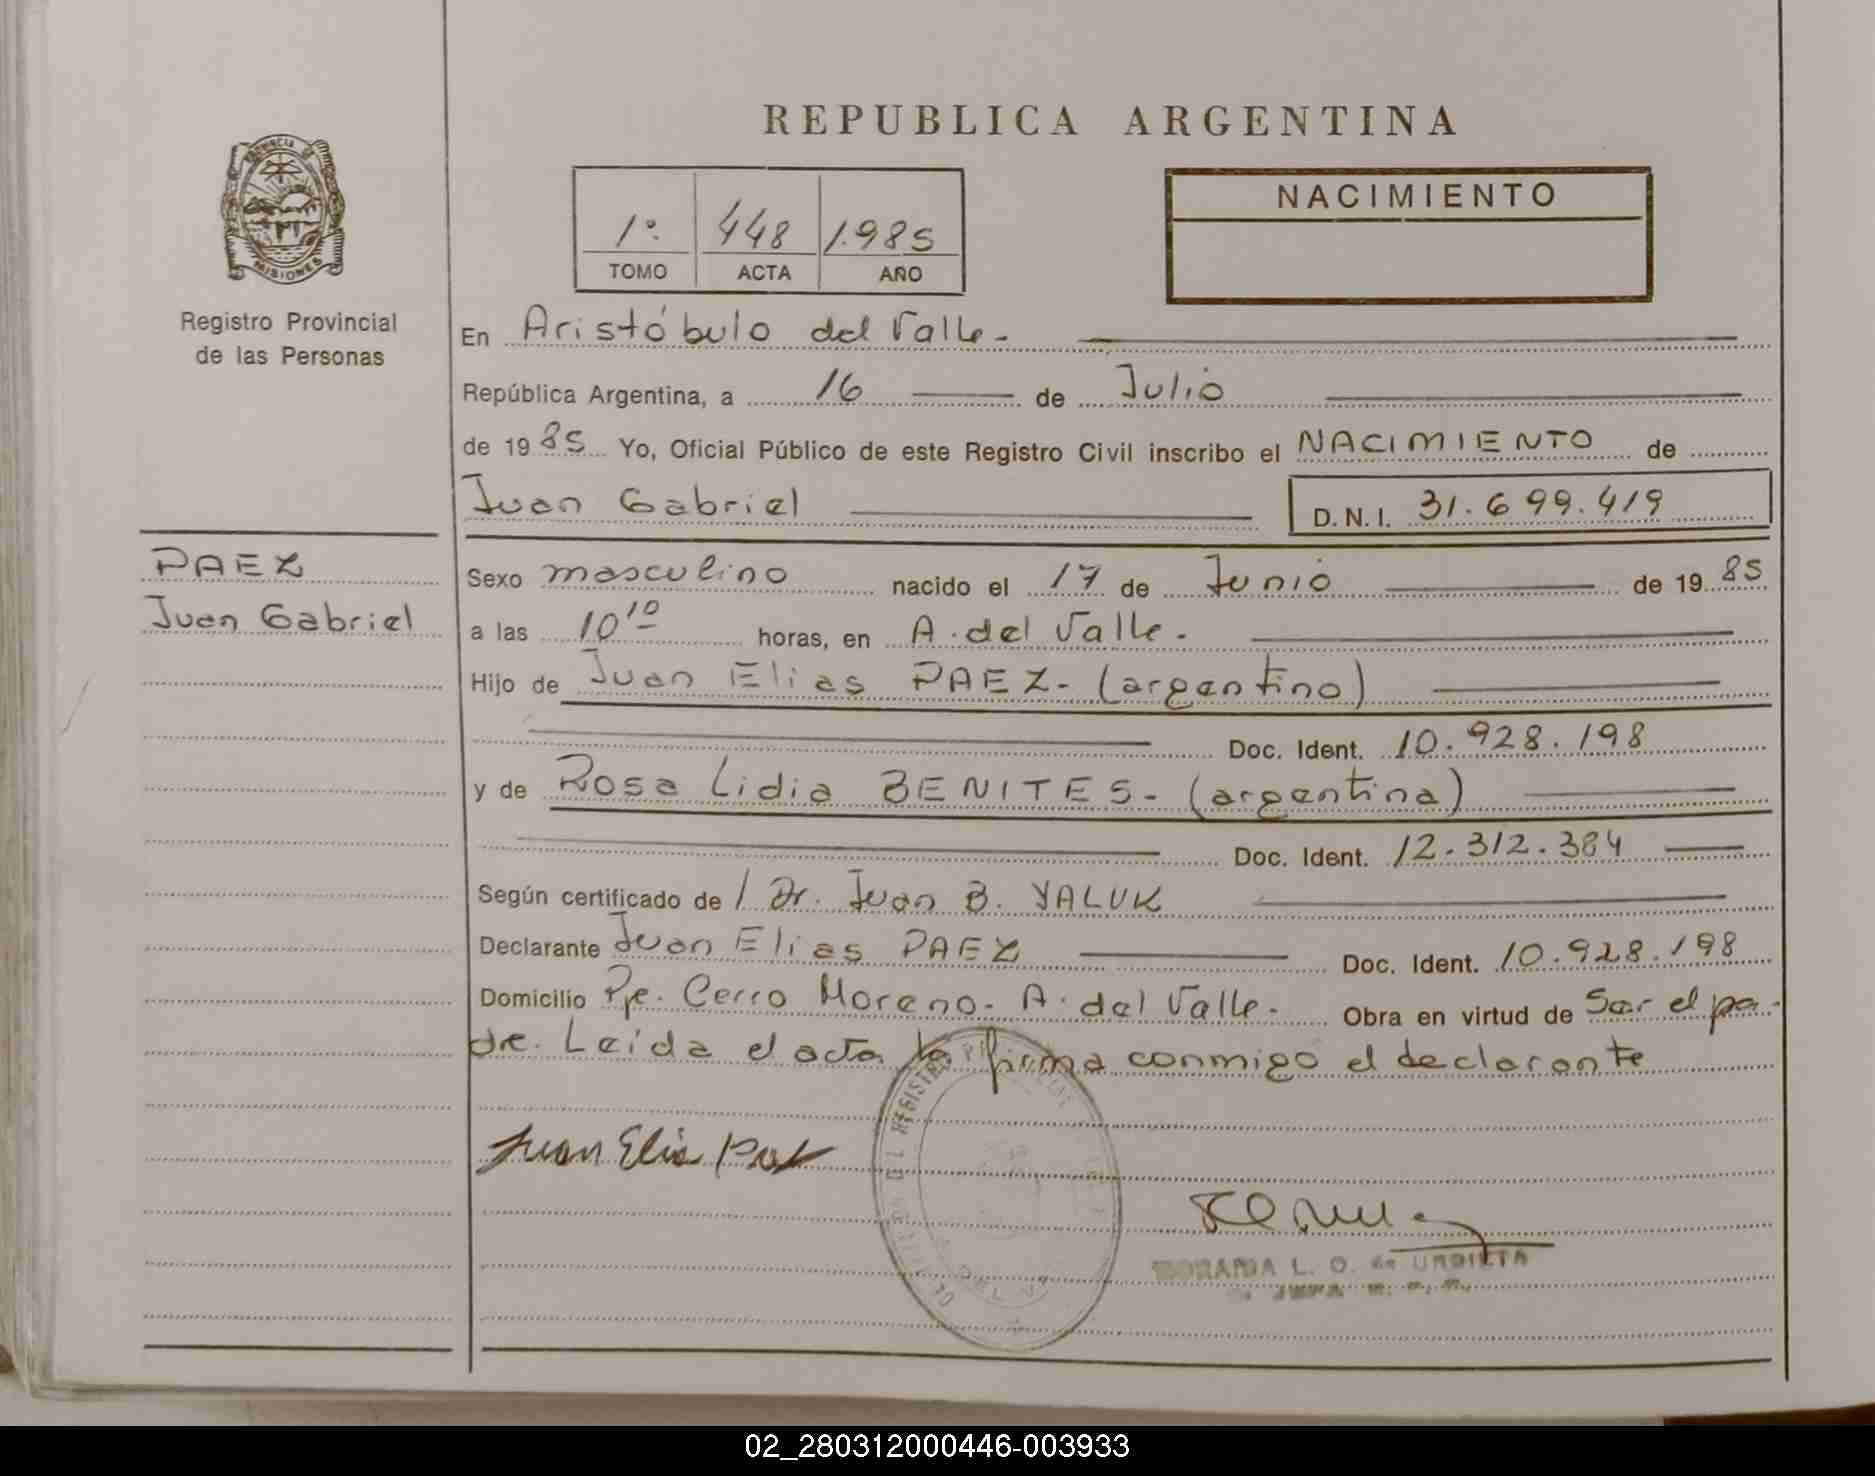 REPUBLICA ARGENTINA
PROVINCIA DE
MISIONES
Registro Provincial
de las Personas
1º 448 1.985
TOMO ACTA AÑO
NACIMIENTO
En Aristóbulo del Valle.
República Argentina, a 16 de Julio
de 1985 Yo, Oficial Público de este Registro Civil inscribo el NACIMIENTO de
Juan Gabriel D.N.I. 31.699.419
PAEZ
Juan Gabriel
Sexo masculino nacido el 17 de Junio de 1985
a las 10 10 horas, en A. del Valle.
Hijo de Juan Elias PAEZ- (argentino)
Doc. Ident. 10.928.198
y de Rosa Lidia BENITES- (argentina)
Doc. Ident. 12.312.384
Según certificado de / Dr. Juan B. YALUK
Declarante Juan Elias PAEZ Doc. Ident. 10.928.198
Domicilio Pje. Cerro Moreno- A. del Valle- Obra en virtud de Ser el pa-
dre. Leída el acta la firma conmigo el declarante
Juan Elia
L. O. de URBIETA
02_280312000446-003933